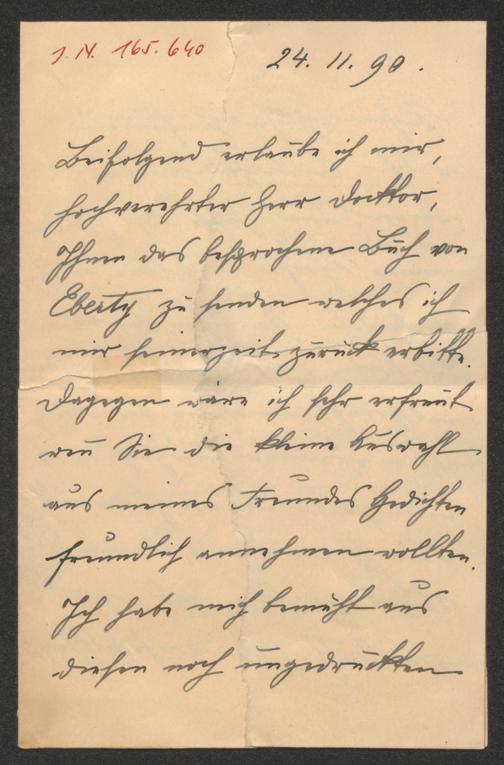 J. N. 165.640
24. 11. 90.
Beifolgend erlaube ich mir,
hochverehrter Herr Docktor,
Ihnen das besprochene Buch von
Eberty zu senden welches ich
mir seinerzeit zurück erbitte.
Dagegen wäre ich sehr erfreut
wen̄ Sie die kleine Auswahl
aus meines Freundes Gedichten
freundlich annehmen wollten.
Ich habe mich bemüht aus
diesen noch ungedruckten